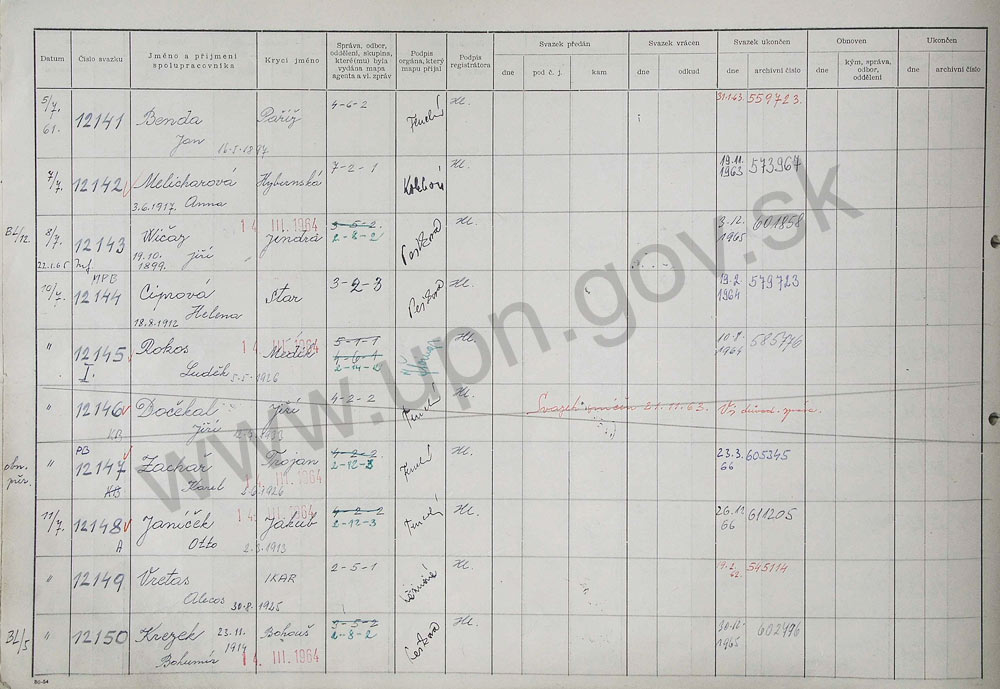 Datum
Číslo svazku
Jméno a příjmení spolupracovníka
Krycí jméno
Správa, odbor, oddělení, skupina, které(mu) byla vydána mapa agenta a vl. zpráv
Podpis orgána, který mapu přijal
Podpis registrátora
Svazek předán
dne
pod č. j.
kam
Svazek vrácen
dne
odkud
Svazek ukončen
dne
archivní číslo
Obnoven
dne
kým, správa, odbor, oddělení
Ukončen
dne
archivní číslo
5/7. 61. 12141 Benda Paříž 4-6-2 Hl. 31.1.63. 559723.
Jan 16.5.1897
7/7. 12142 Melicharová Hybernská 7-2-1 Hl. 19.11. 1963 573967
3.6.1917. Anna
BL/12. 8/7. 12143 Wičaz 14 III.1964 Jindra 3-5-2 Hl. 3.12. 1965 601858
22.1.65 19.10. 1899. Jiří 2-8-2
MPB
10/7. 12144 Cipnová Star 3-2-3 Hl. 19.2. 1964 579723
18.8.1912 Helena
" 12145 Rokos 14 III.1964 Meděk 5-1-1 Hl. 585776
I. Luděk 5.5.1926 4-6-1
" 12146 Dočekal Jiří 4-2-2 Hl. Svazek zničen 21.11.63.
KB Jiří
PB
obn. " 12147 Zachar Trojan 4-2-2 Hl. 23.3. 66 605345
KB Karel 14 III.1964 2-12-3
11/7. 12148 Janíček 14 III.1964 Jakub 4-2-2 Hl. 26.12 66 611205
A Otto 2.3.1913 2-12-3
" 12149 Vretas IKAR 2-5-1 Hl. 545114
Alecos 30.8.1925
BL/5 " 12150 Krezek 23.11. 1914 Bohouš 3-5-2 Hl. 30.12. 1965 602476
Bohumír 14. III.1964 2-8-2
www.upn.gov.sk